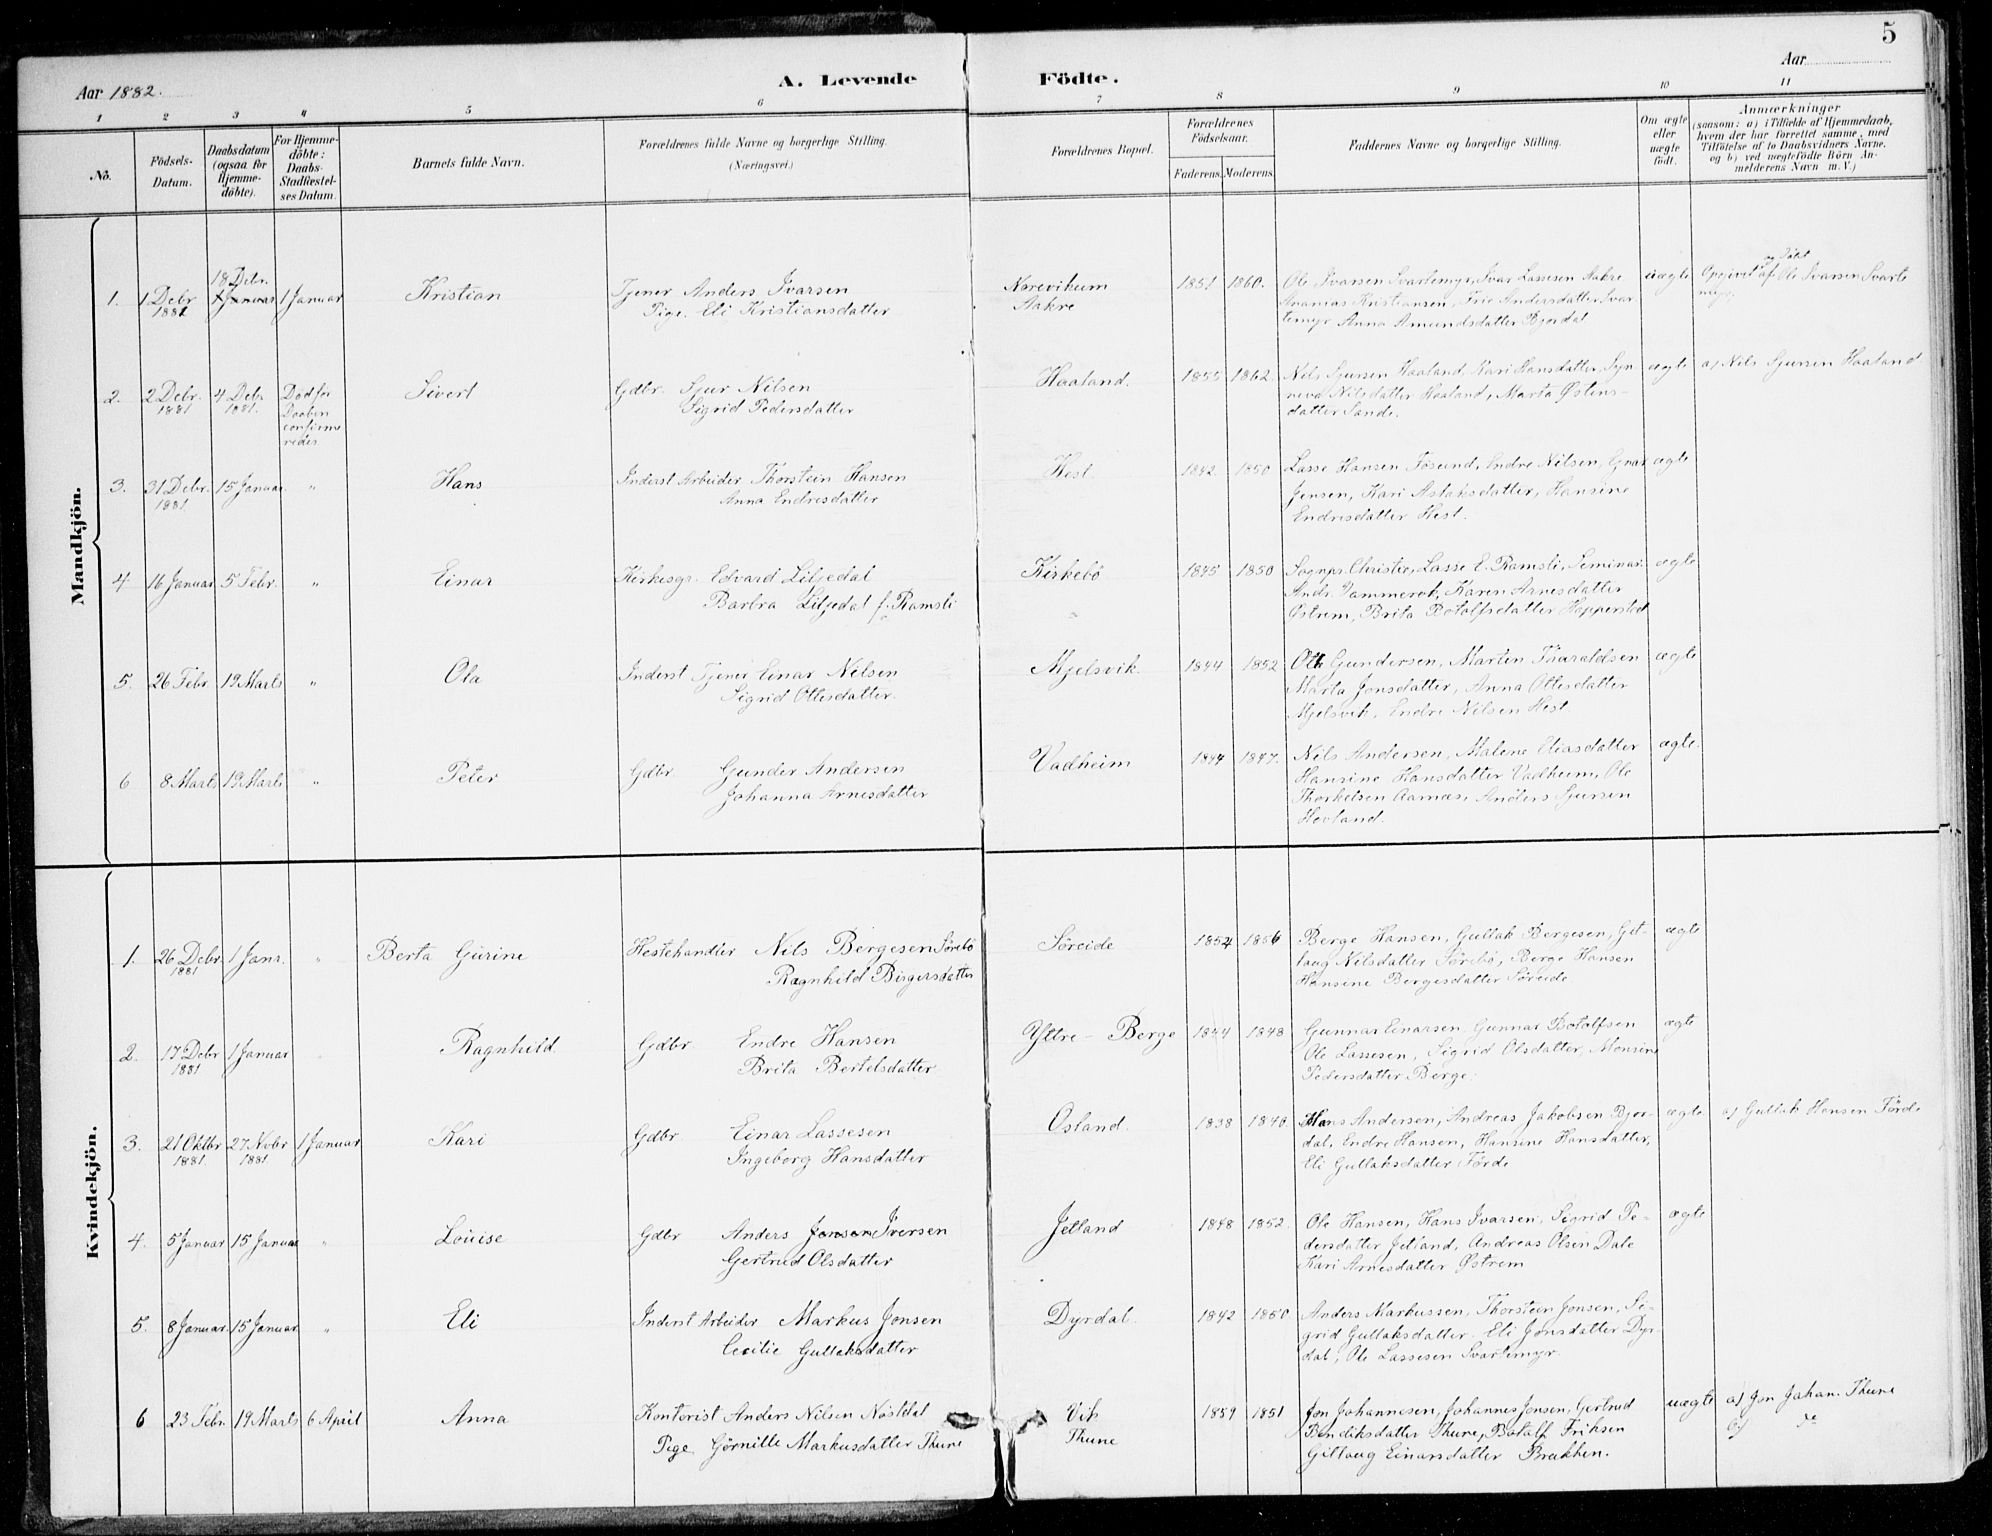 5
Aar 1882.
A. Levende Födte.
Aar
1 2 3 4 5 6 7 8 9 10 11
No.
Födsels-Datum.
Daabsdatum (ogsaa for Hjemme-döbte).
For Hjemme-döbte: Daabs-Stadfæstel-ses Datum.
Barnets fulde Navn.
Forældrenes fulde Navne og borgerlige Stilling. (Næringsvei.)
Forældrenes Bopæl.
Forældrenes Födselsaar.
Faderens. Moderens.
Faddernes Navne og borgerlige Stilling.
Om ægte eller uægte födt.
Anmærkninger
(saasom: a) i Tilfælde af Hjemmedaab,
hvem der har forrettet samme, med
Tilföielse af to Daabsvidners Navne.
og b) ved uægtefödte Börn An-
melderens Navn m. V.)
Mandkjön.
1. 1 Debr 1881 18 Debr. 1 Januar 1 Januar Kristian
Tjener Anders Ivarsen
Pige. Eli Kristiansdatter
Nörevikum
Aakre
1851 1860.
Ole Ivarsen Svartemyr, Ivar Lassesen Aakre
Ananias Kristiansen, Frie Andersdatter Svar
temyr Anna Amundsdatter Bjordal
uægte
Opgivet og döbt af Ole Ivarsen Svarte
myr.
2. 2 Debr. 1881 4 Debr 1881. Död för Daaben confirme redes Sivert
Gdbr. Sjur Nilsen
Sigrid Pedersdatter
Haaland. 1855 1862.
Nils Sjursen Haaland, Kari Hansdatter, Syn-
neva Nilsdatter Haaland, Marta Østens-
datter Sande.
ægte a) Nils Sjursen Haaland
3. 31 Debr. 1881 15 Januar " Hans
Inderst Arbeider Thorstein Hansen
Anna Endresdatter
Hest. 1842 1850
Lasse Hansen Tösund, Endre Nilsen,
Jensen, Kari Aslaksdatter, Hansine
Endresdatter Hest.
ægte
4 16 Januar 5 Febr. " Einar
Kirkesgr. Edvard Liljedal
Barbra Liljedal f. Ramsli
Kirkebö
"
1845 1850
Sognpr. Christie, Lasse E. Ramsli, Seminar.
Andr. Vammerok, Karen Arnesdatter
Østrem, Brita Botolfsdatter Hopperstad
ægte
5. 26 Febr 19 Marts " Ola
Inderst Tjener Einar Nilsen
Sigrid Ottesdatter.
Mjelsvik. 1844 1852
Otte Gundersen, Marten Tharaldsen
Marta Jonsdatter, Anna Ottesdatter
Mjelsvik, Endre Nilsen Hest
ægte
6 8 Marts 19 Marts " Peter
Gdbr. Gunder Andersen
Johanna Arnesdatter
Vadheim 1844 1847.
Nils Andersen, Malene Eliasdatter
Hansine Hansdatter Vadheim, Ole
Thorkelsen Aamæs, Anders Sjursen
Hovland.
ægte.
Kvindekjön.
1. 26 Debr. 1881 1 Janr. " Berta Gurine
Hestehandler Nils Bergesen Sörebö
Ragnhild Birgersdatter
Söreide 1854 1856
Berge Hansen, Gullak Bergesen, Git-
laug Nilsdatter Sörebö, Berge Hansen
Hansine Bergesdatter Söreide.
ægte
2. 17 Debr 1881 1 Januar Ragnhild.
Gdbr. Endre Hansen
Brita Bertelsdatter
Yttre - Berge 1844 1848
Gunnar Einarsen, Gunnar Botolfsen
Ole Lassesen, Sigrid Olsdatter, Monsine
Pedersdatter Berge.
ægte
3. 21 Oktbr 1881. 27 Novbr 1881. 1 Januar Kari
Gdbr. Einar Lassesen
Ingeborg Hansdatter
Osland. 1838 1840.
Hans Andersen, Andreas Jakobsen Bjor-
dal, Endre Hansen, Hansine Hansdatter,
Eli Gullaksdatter Förde
ægte. a) Gullak Hansen Förde
4. 5 Januar 15 Januar " Louise
Gdbr Anders Jonsen Iversen
Gertrud Olsdatter
Jetland 1848 1852.
Ole Hansen, Hans Ivarsen, Sigrid Pe-
dersdatter Jetland, Andreas Olsen Dale
Kari Arnesdatter Østrem
ægte
5. 8 Januar 15 Januar " Eli
Inderst Arbeider Markus Jonsen
Cecilie Gullaksdatter
Dyrdal. 1842 1850
Anders Markussen, Thorstein Jonsen, Si-
grid Gullaksdatter. Eli Jonsdatter Dyr-
dal, Ole Lassesen Svartemyr.
6 23 Febr. 19 Marts 6 April Anna
Kontorist Anders Nilsen Nöstdal
Pige Görnille Markusdatter Thune
Vik
Thune
1859 1851
Jon Johannesen, Johannes Jonsen, Gertrud
Bendiksdatter Thune, Botolf Eriksen
Gitlaug Einarsdatter Brækken.
uægte
a) Jon Johan. Thune
b) do